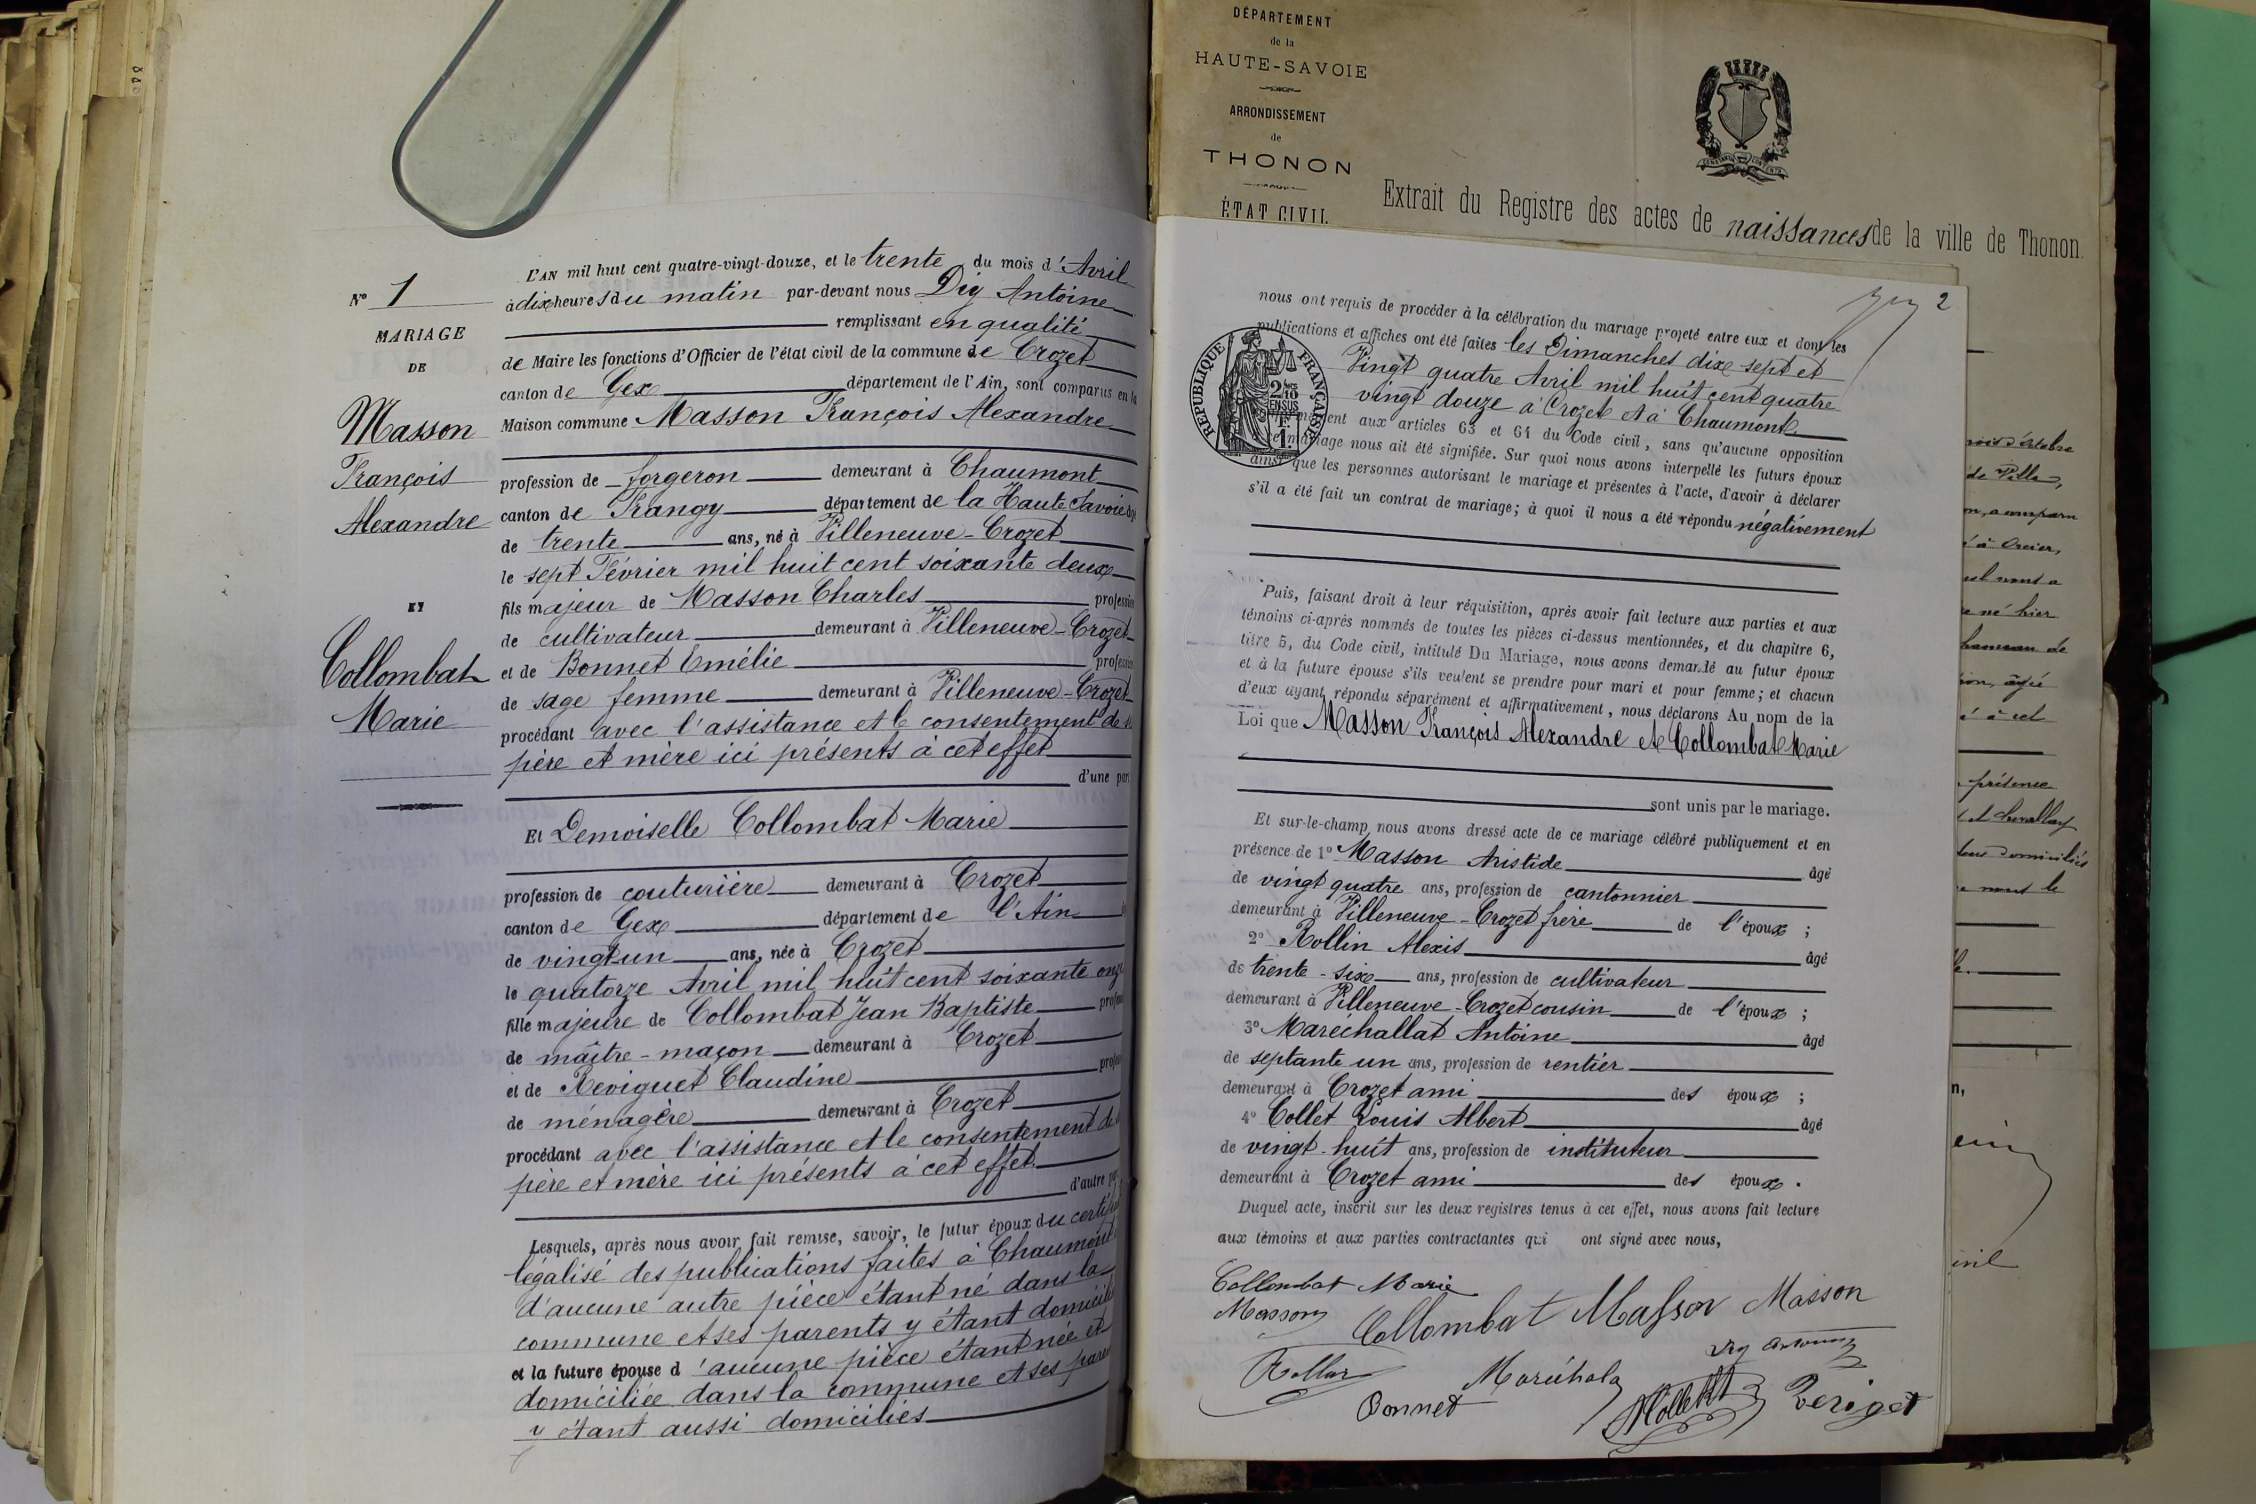 N° 1
MARIAGE
DE
Masson
François
Alexandre
ET
Collombat
Marie
L'AN mil huit cent quatre-vingt-douze, et le trente du mois d'Avril
à dix heures du matin par-devant nous Dig Antoine
remplissant en qualité
de Maire les fonctions d'Officier de l'état civil de la commune de Crozet
canton de Gex département de l'Ain, sont comparus en la
Maison commune Masson François Alexandre
profession de forgeron demeurant à Chaumont
canton de Frangy département de la Haute Savoie
de trente ans, né à Villeneuve-Crozet
le sept Février mil huit cent soixante deux
fils majeur de Masson Charles profession
de cultivateur demeurant à Villeneuve-Crozet
et de Bonnet Emélie profession
de sage femme demeurant à Villeneuve-Crozet
procédant avec l'assistance et le consentement de
père et mère ici présents à cet effet
d'une part
Et Demoiselle Collombat Marie
profession de couturière demeurant à Crozet
canton de Gex département de l'Ain
de vingt-un ans, née à Crozet
le quatorze Avril mil huit cent soixante onze
fille majeure de Collombat Jean Baptiste
de maître-maçon demeurant à Crozet
et de Reviguet Claudine
de ménagère demeurant à Crozet
procédant avec l'assistance et le consentement de
père et mère ici présents à cet effet
d'autre
Lesquels, après nous avoir fait remise, savoir, le futur époux du
légalisé des publications faites à Chaumont
d'aucune autre pièce étant né dans la
commune et ses parents y étant
et la future épouse d'aucune pièce étant née et
domiciliée dans la commune et ses
y étant aussi domiciliés
DÉPARTEMENT
de la
HAUTE-SAVOIE
ARRONDISSEMENT
de
THONON
ÉTAT CIVIL
Extrait du Registre des actes de naissances de la ville de Thonon.
2
nous ont requis de procéder à la célébration du mariage projeté entre eux et dont les
publications et affiches ont été faites les Dimanches dix sept et
Vingt quatre Avril mil huit cent quatre
vingt douze à Crozet et à Chaumont
aux articles 63 et 64 du Code civil, sans qu'aucune opposition
mariage nous ait été signifiée. Sur quoi nous avons interpellé les futurs époux
ainsi que les personnes autorisant le mariage et présentes à l'acte, d'avoir à déclarer
s'il a été fait un contrat de mariage; à quoi il nous a été répondu négativement
REPUBLIQUE FRANÇAISE
2/10
EN SUS
1F.
Puis, faisant droit à leur réquisition, après avoir fait lecture aux parties et aux
témoins ci-après nommés de toutes les pièces ci-dessus mentionnées, et du chapitre 6,
titre 5, du Code civil, intitulé Du Mariage, nous avons demandé au futur époux
et à la future épouse s'ils veulent se prendre pour mari et pour femme; et chacun
d'eux ayant répondu séparément et affirmativement, nous déclarons Au nom de la
Loi que Masson François Alexandre et Collombat Marie
sont unis par le mariage.
Et sur-le-champ nous avons dressé acte de ce mariage célébré publiquement et en
présence de 1° Masson Aristide âgé
de vingt quatre ans, profession de cantonnier
demeurant à Villeneuve-Crozet frère de l'époux ;
2° Rollin Alexis âgé
de trente-six ans, profession de cultivateur
demeurant à Villeneuve-Crozet cousin de l'époux ;
3° Maréchallat Antoine âgé
de septante un ans, profession de rentier
demeurant à Crozet ami des époux ;
4° Collet Louis Albert âgé
de vingt-huit ans, profession de instituteur
demeurant à Crozet ami des époux.
Duquel acte, inscrit sur les deux registres tenus à cet effet, nous avons fait lecture
aux témoins et aux parties contractantes qui ont signé avec nous,
Collombat Marie
Masson Collombat Masson Masson
Dig Antoine
Bonnet